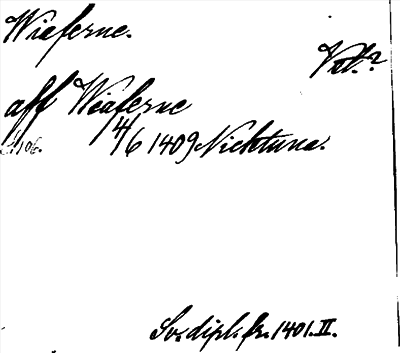 Wiaferne.
Vtl.?
aff Wiaferne
4/6 1409 Nichtuna.
Sv. dipl. fr. 1401. II.